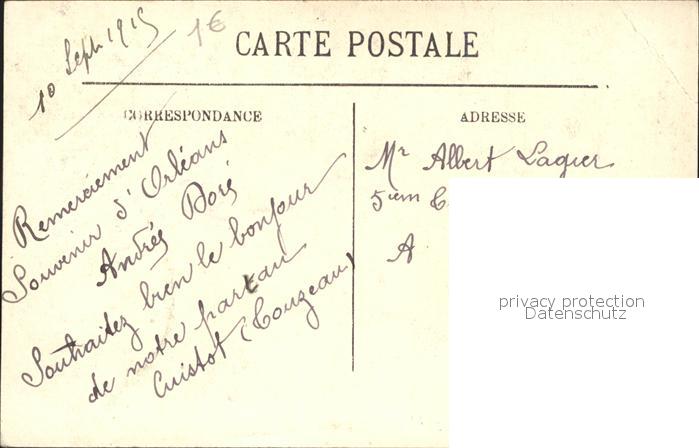 10 Sept 1915
1€
CARTE POSTALE
CORRESPONDANCE
Remerciement
Souvenir d'Orléans
Andrés Doré
Souhaitez bien le bonjour
de notre part au
Cuistot (Couzeau)
ADRESSE
Mr Albert Lagier
5ièm C
A
privacy protection
Datenschutz